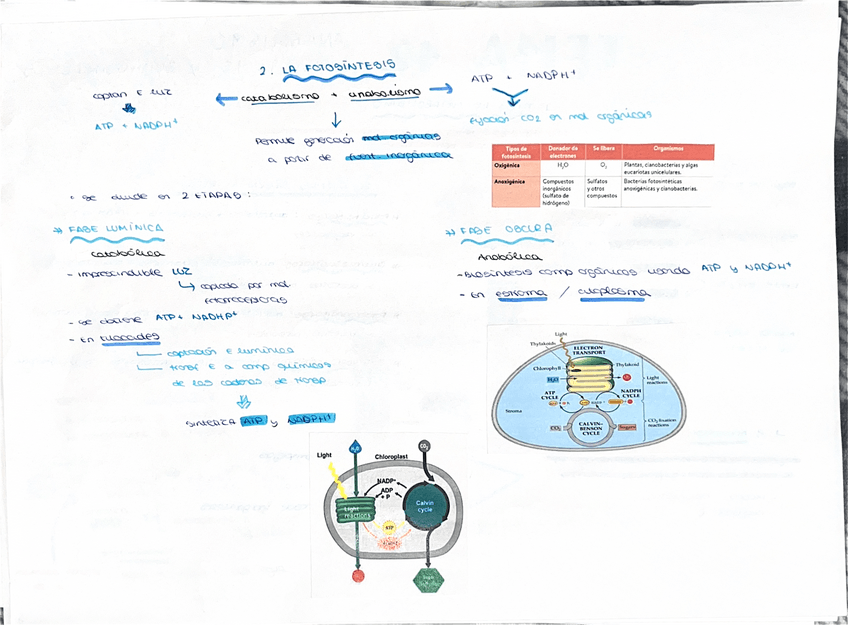 2. LA FOTOSÍNTESIS
captan E luz
ATP + NADPH⁺
catabolismo + anabolismo
ATP + NADPH⁺
fijación CO2 en mol orgánicas
Permite generación mol orgánicas
a partir de inorgánica
Tipos de fotosíntesis
Donador de electrones
Se libera
Organismos
Oxigénica
H₂O
O₂
Plantas, cianobacterias y algas eucariotas unicelulares.
Anoxigénica
Compuestos inorgánicos (sulfato de hidrógeno)
Sulfatos y otros compuestos
Bacterias fotosintéticas anoxigénicas y cianobacterias.
• Se divide en 2 ETAPAS:
* FASE LUMÍNICA
Catabólica
- imprescindible LUZ
captada por mol
fotorreceptoras
- se obtiene ATP + NADHP⁺
- En tilacoides
captación E lumínica
transf E a comp químicos
de las cadenas de transp
sintetiza ATP y NADPH⁺
* FASE OSCURA
Anabólica
- Biosíntesis comp orgánicos usando ATP y NADPH⁺
- En estroma / citoplasma
Light
Thylakoids
ELECTRON TRANSPORT
Chlorophyll
Thylakoid
H₂O
Light reactions
ATP CYCLE
NADPH CYCLE
Stroma
CO₂
CALVIN-BENSON CYCLE
Sugars
CO₂ fixation reactions
Light
H₂O
Chloroplast
CO₂
NADP⁺
ADP
+ P
Light reactions
Calvin cycle
ATP